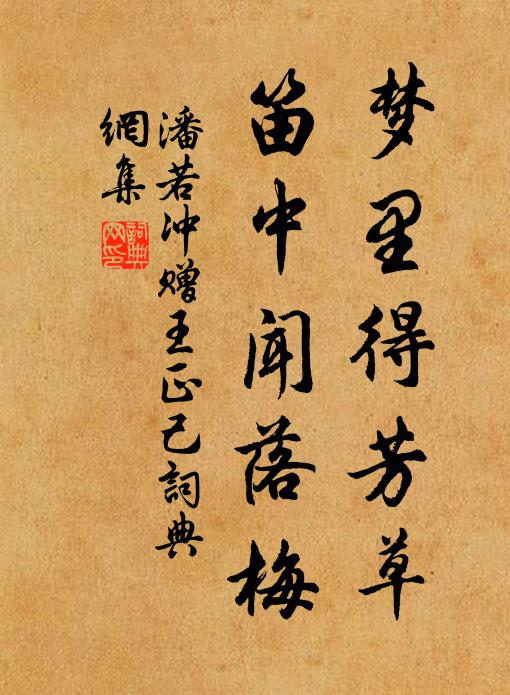 梦里得芳草
笛中闻落梅
潘若沖赠王正己詞典
網集
詞典
网印